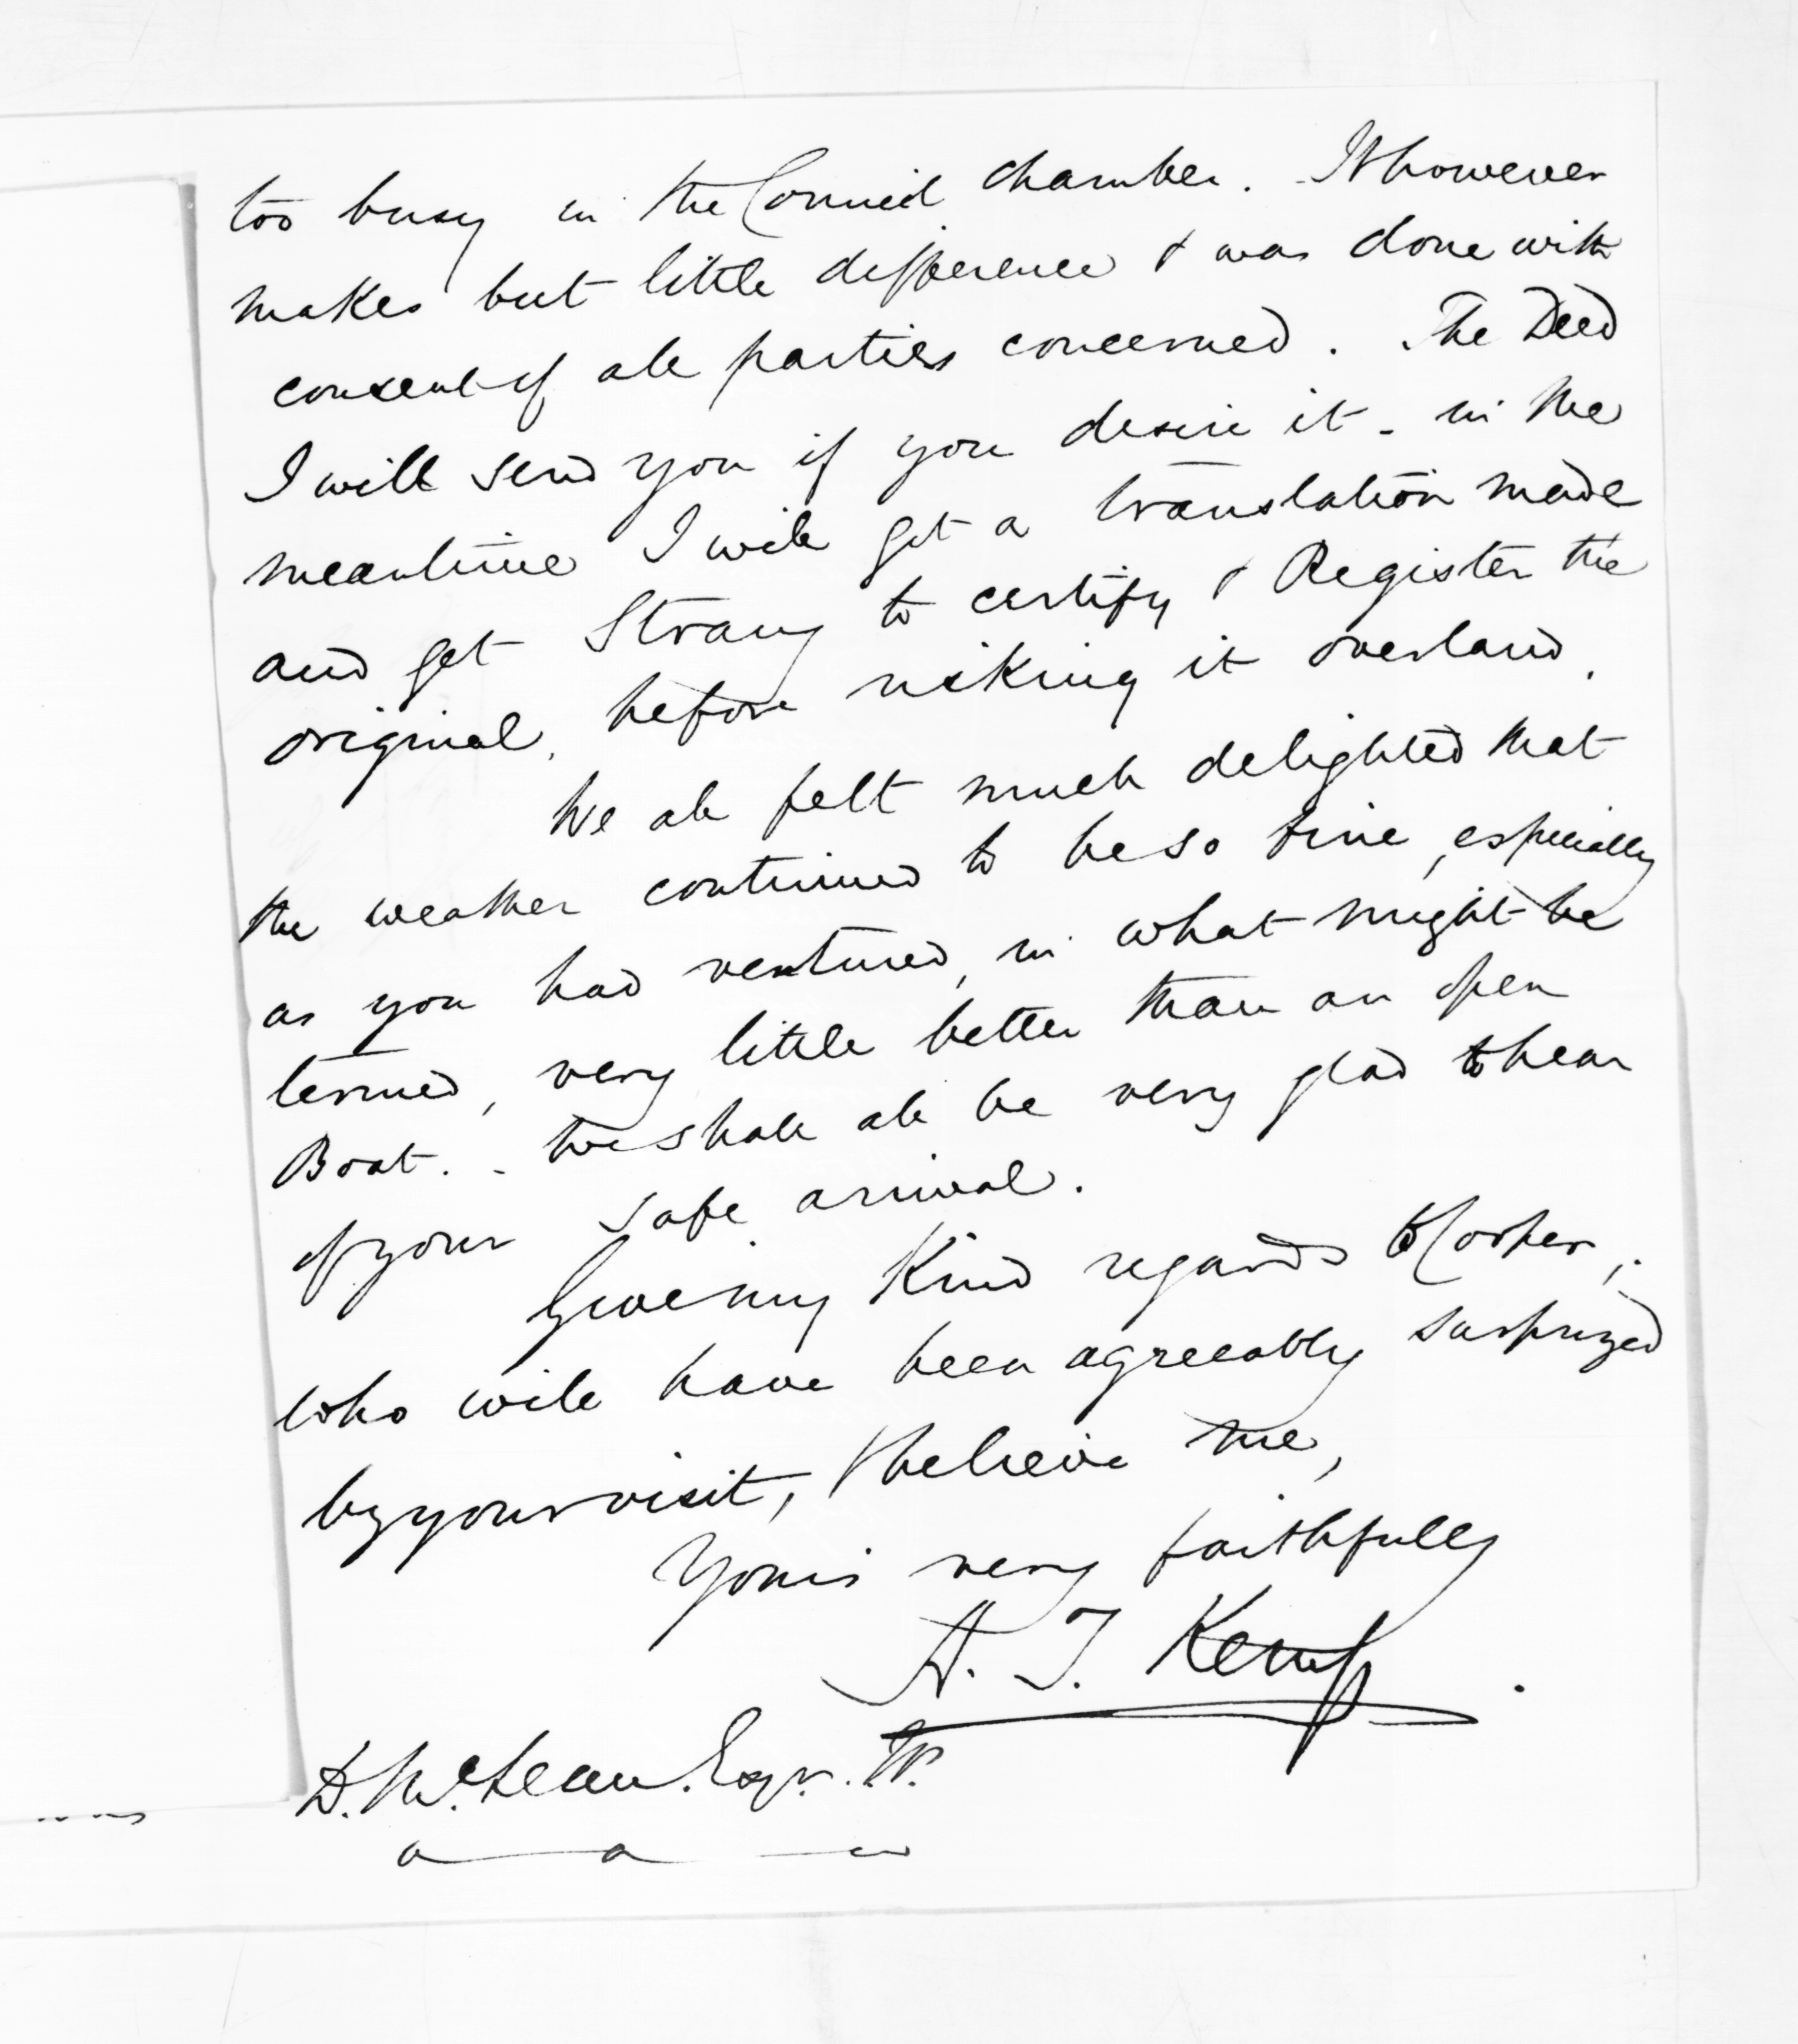 too busy in the Council chamber. - It however
makes but little difference & was done with
consent of all parties concerned. The Deed
I will send you if you desire it - in the
meantime I will get a translation made
and get Strang to certify & Register the
original, before risking it overland.
We all felt much delighted that
the weather continued to be so fine, especially
as you had ventured, in what might be
termed, very little better than an open
Boat. - We shall all be very glad to hear
of your safe arrival.
Give my Kind regards to Cooper,
who will have been agreeably surprized
by your visit, & believe me,
Yours very faithfully
A. J. Kemp.
D. McLean. Esqr.